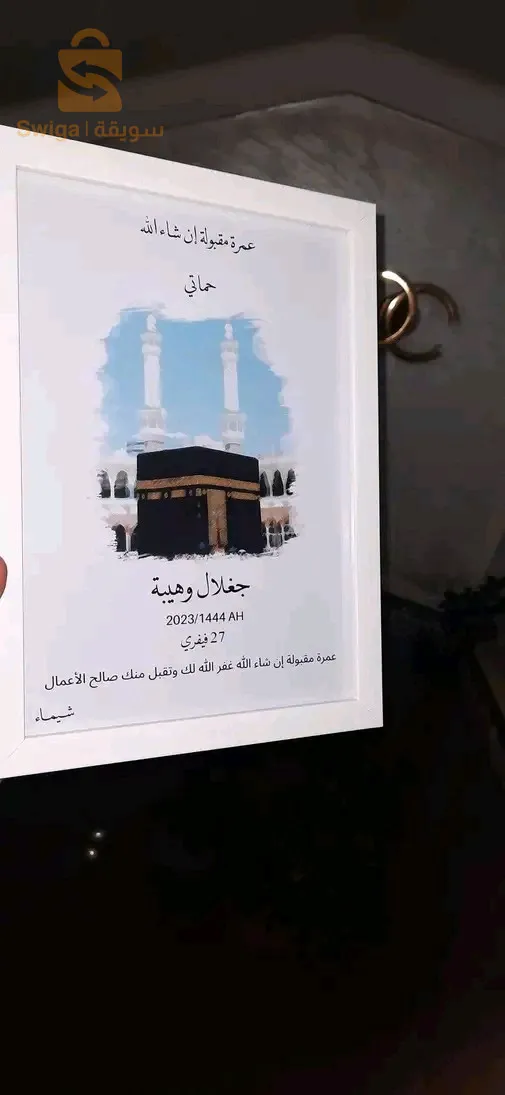 Swiga | سويقة
عمرة مقبولة إن شاء الله
حماتي
جغلال وهيبة
2023/1444 AH
27 فيفري
عمرة مقبولة إن شاء الله غفر الله لك وتقبل منك صالح الأعمال
شيماء